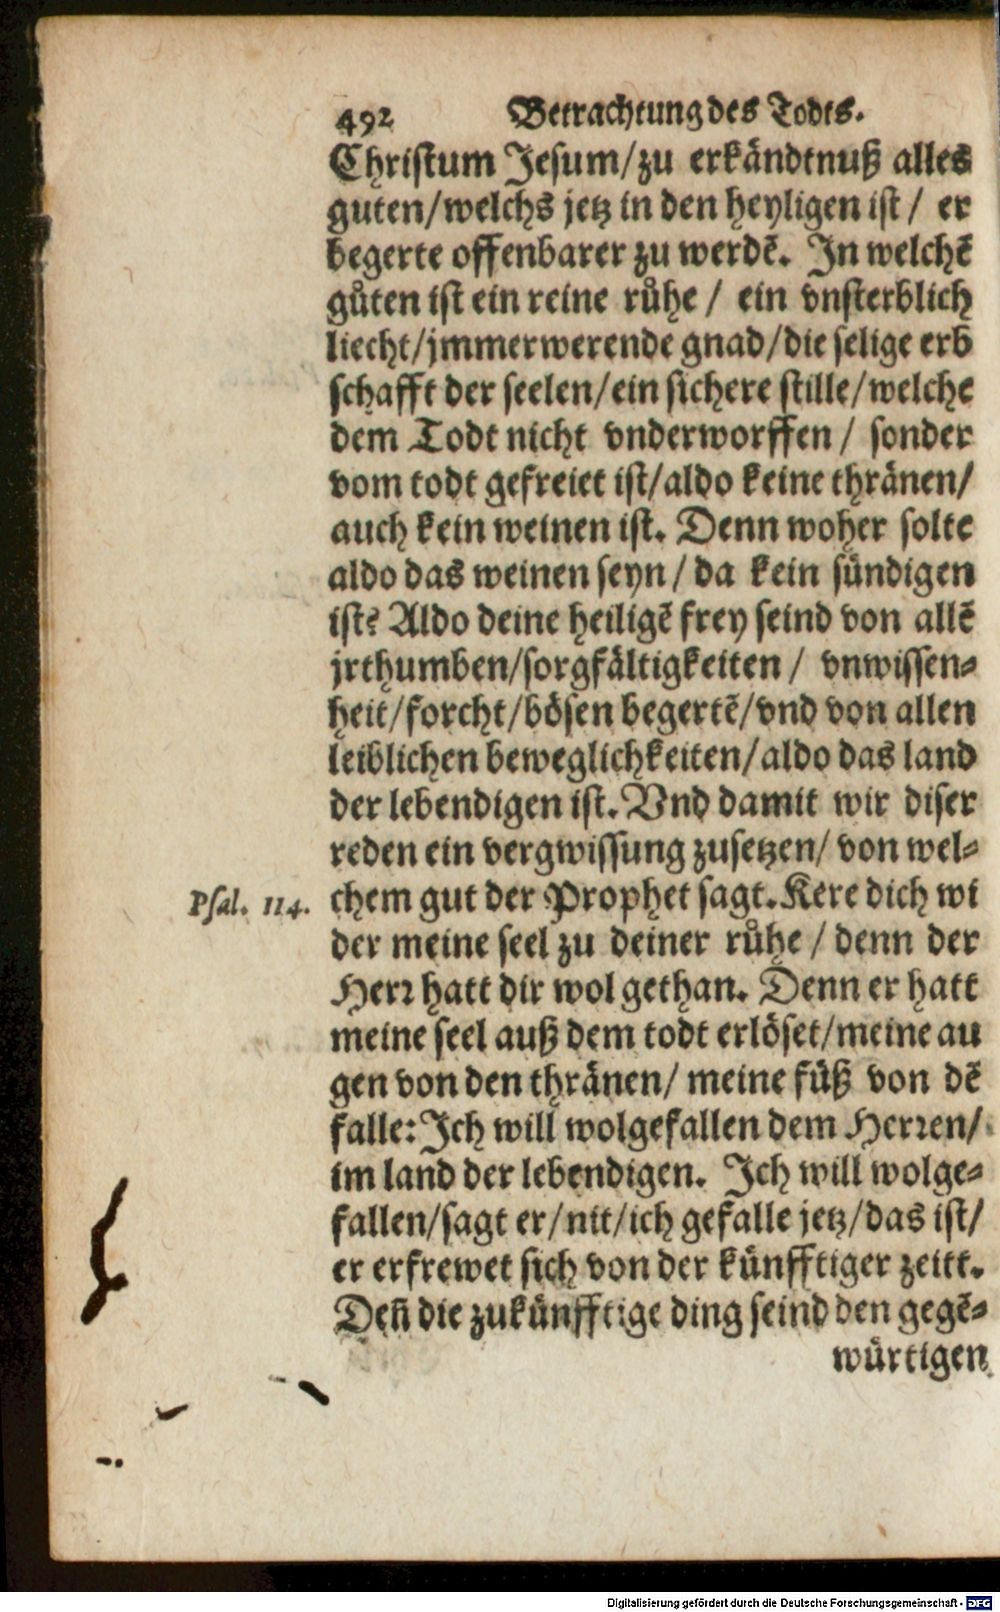 492 Betrachtung des Todts.
Christum Jesum/zu erkändtnuß alles
guten/welchs jetz in den heyligen ist/ er
begerte offenbarer zu werdē. In welchē
gůten ist ein reine růhe / ein vnsterblich
liecht/jmmerwerende gnad/die selige erb
schafft der seelen/ein sichere stille/welche
dem Todt nicht vnderworffen / sonder
vom todt gefreiet ist/aldo keine thränen/
auch kein weinen ist. Denn woher solte
aldo das weinen seyn / da kein sündigen
ist? Aldo deine heiligē frey seind von allē
jrthumben/sorgfältigkeiten / vnwissen-
heit/forcht/bösen begertē/vnd von allen
leiblichen beweglichkeiten/aldo das land
der lebendigen ist. Vnd damit wir diser
reden ein vergwissung zusetzen/ von wel-
Psal. 114. chem gut der Prophet sagt. Kere dich wi
der meine seel zu deiner růhe / denn der
Herr hatt dir wol gethan. Denn er hatt
meine seel auß dem todt erlöset/meine au
gen von den thränen/ meine füß von dē
falle: Ich will wolgefallen dem Herren/
im land der lebendigen. Ich will wolge-
fallen/sagt er/nit/ich gefalle jetz/das ist/
er erfrewet sich von der künfftiger zeitt.
Deñ die zukünfftige ding seind den gegē-
würtigen
Digitalisierung gefördert durch die Deutsche Forschungsgemeinschaft - DFG